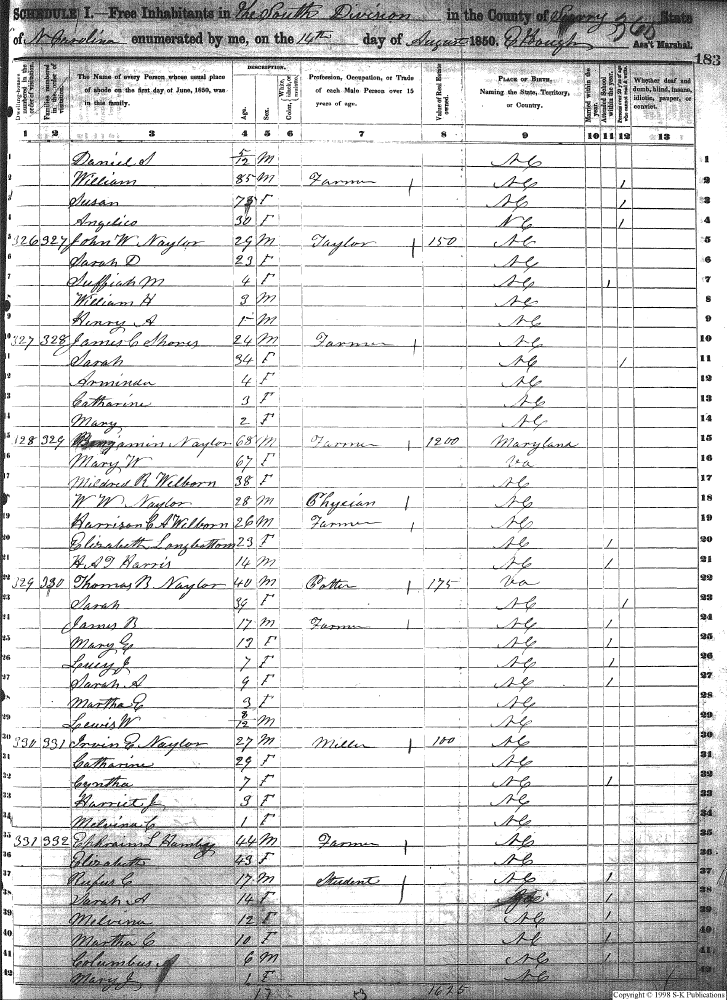 SCHEDULE I.—Free Inhabitants in The South Division in the County of Surry State 360
of N. Carolina enumerated by me, on the 14th day of August 1850. Ass't Marshal.
183
Dwelling-houses numbered in the order of visitation.
Families numbered in the order of visitation.
The Name of every Person whose usual place of abode on the first day of June, 1850, was in this family.
DESCRIPTION.
Age.
Sex.
Color, White, black, or mulatto.
Profession, Occupation, or Trade of each Male Person over 15 years of age.
Value of Real Estate owned.
PLACE OF BIRTH, Naming the State, Territory, or Country.
Married within the year.
Attended School within the year.
Persons over 20 y'rs of age who cannot read & write.
Whether deaf and dumb, blind, insane, idiotic, pauper, or convict.
1 2 3 4 5 6 7 8 9 10 11 12 13
1 Daniel S 5/12 M NC 1
2 William 85 M Farmer / NC 1 2
3 Susan 78 F NC 1 3
4 Angelico 30 F NC 1 4
5 326 327 John W Naylor 29 M Taylor / 150 NC 5
6 Sarah D 23 F NC 6
7 Suffiah M 4 F NC 1 7
8 William H 3 M NC 8
9 Henry A 1 M NC 9
10 327 328 James C Shores 24 M Farmer / NC 10
11 Sarah 34 F NC 1 11
12 Arminda 4 F NC 12
13 Catharine 3 F NC 13
14 Mary 2 F NC 14
15 128 329 Benjamin Naylor 68 M Farmer / 1200 Maryland 15
16 Mary W 67 F Va 16
17 Mildred R Welborn 38 F NC 17
18 W W Naylor 28 M Phycian / NC 18
19 Harrison C A Welborn 26 M Farmer / NC 19
20 Elizabeth Longbottom 23 F NC 1 20
21 H A T Harris 14 M NC 1 21
22 329 330 Thomas B Naylor 40 M Potter / 175 Va 22
23 Sarah 39 F NC 1 23
24 James B 17 M Farmer / NC 1 24
25 Mary E 13 F NC 1 25
26 Lucy J 7 F NC 1 26
27 Sarah A 9 F NC 1 27
28 Martha E 3 F NC 28
29 Lewis W 8/12 M NC 29
30 330 331 Irvin E Naylor 27 M Miller / 100 NC 30
31 Catharine 29 F NC 31
32 Cyntha 7 F NC 1 32
33 Harriet J 3 F NC 33
34 Melvina C 1 F NC 34
35 331 332 Ephraim L Hambey 44 M Farmer / NC 35
36 Elizabeth 43 F NC 36
37 Rufus C 17 M Student / NC 1 37
38 Sarah A 14 F 1 38
39 Melvina 12 F NC 1 39
40 Martha C 10 F NC 1 40
41 Columbus A 6 M NC 1 41
42 Mary J 1 F NC 42
17 1625
Copyright © 1998 S-K Publications